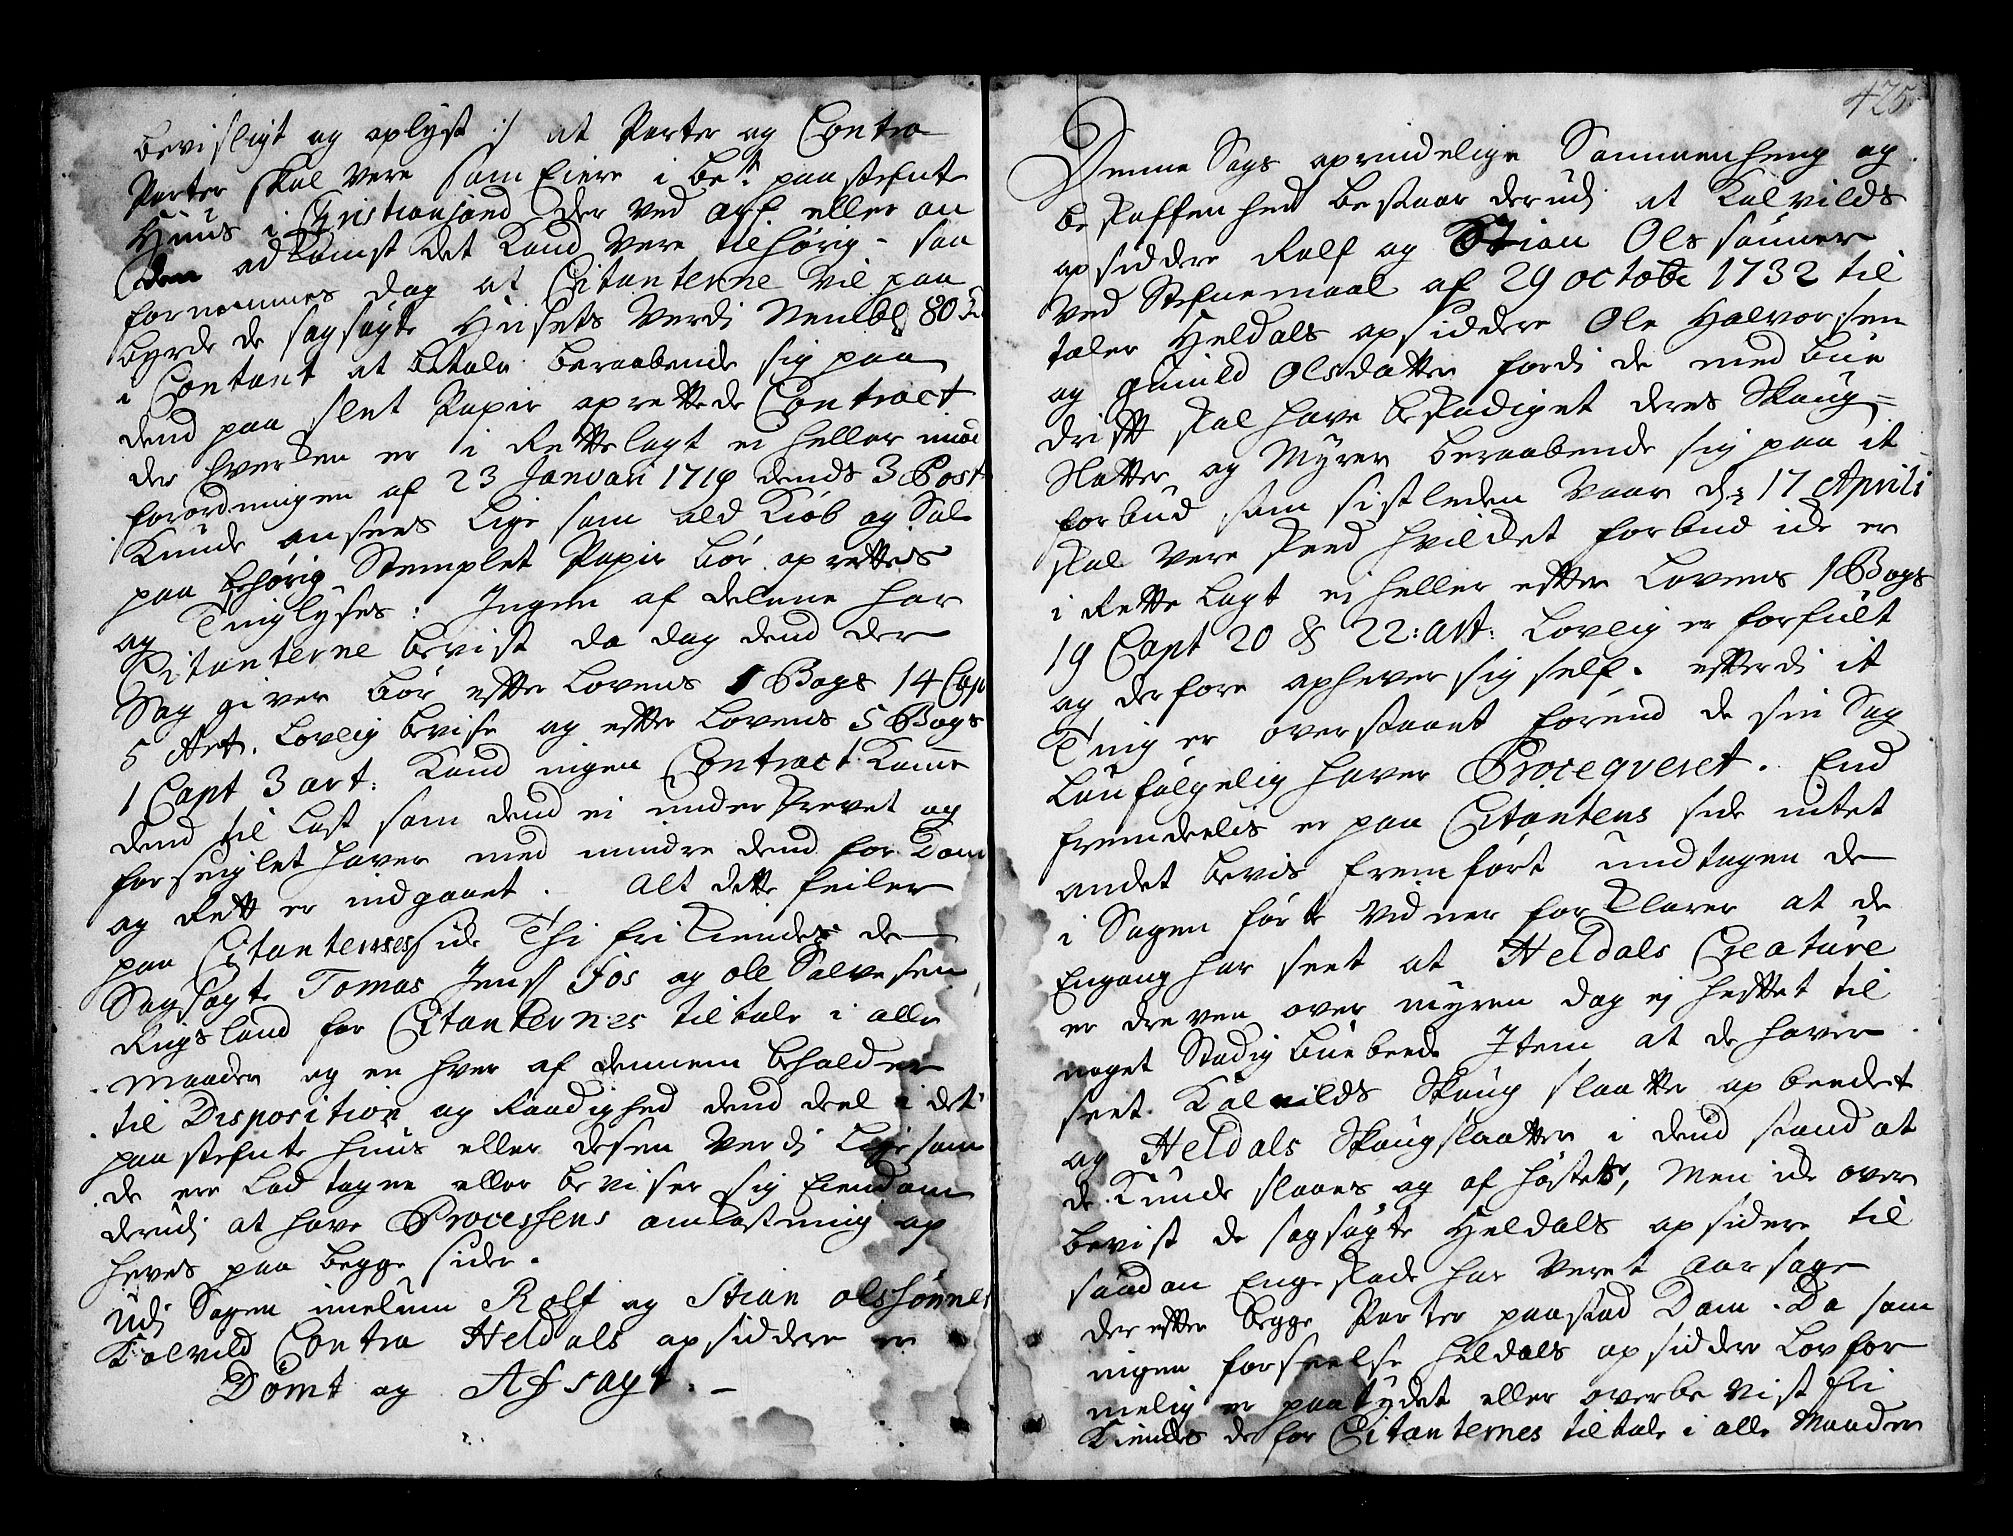 bevisligt og oplyst :/ at Parter og Contra
Parter skal være sam Eiere i bete paastefnte
Huus i Christiansand der ved arf eller an
den adkomst det Kand være tilhørig - saa
fornemmes dog at Citanterne vil paa
byrde de sagsøgte Husets Verdi Nemblig 80 Rd
i Contant at betale beraabende sig paa
dend paa slet Papir oprettede Contract
der hverken er i Rettelagt ei heller imod
forordningen af 23 Januari 1719 dends 3 Post
Kunde ansees lige som ald Kiøb og Sal
paa behørig Stemplet Papir bør oprettes
og Tinglyses: Ingen af delene har
Citanterne bevist da dog dend der
Sag giver bør efter Lovens 1 Bogs 14 Cap
5 Art. lovlig bevise og efter Lovens 5 Bogs
1 Capt 3 art: Kand ingen Contract Komme
dend til Last som dend ei underskrevet og
forseiglet haver med mindre dend for Dom
og Rett er indgaaet. Alt dette feiler
paa Citanternes side Thi fri Kiendes de
Sagsøgte Tomas Jens Fos og Ole Salvesen
Rugsland for Citanternes tiltale i alle
Maader og en hver af dennem beholder
til Disposition og Raadighed dend deel i det
paastefnte huus eller desen Verdi Ligesom
de ere Lod tagne eller beviser sig Eiendom
derudi at have Processens omkostning op
heves paa begge sider.
Udi Sagen imelum Rolf og Stian olssønner
Kalvild Contra Heldals opsiddere er
Dømt og Afsagt. -
425
Denne Sags oprindelige Sammenheng og
beskaffenhed bestaar derudi at Kalvilds
opsiddere Rolf og Stian Ols sønner
ved Stefnemaal af 29 octobr 1732 til
taler Heldals opsiddere Ole Halvorsen
og Gunild Olsdatter fordi de med bue
drift skal have beskadiget deres Skoug=
Slotter og Myrer beraabende sig paa it
forbud som sistleden Vaar d: 17 Aprili
skal vere skeed hvilcket forbud icke er
i Rette lagt ei heller efter Lovens 1 Bogs
19 Capt 20 & 22: art: Lovlig er forfult
og derfore ophever sig self. efterdi it
Ting er overstaaet førend de sin Sag
Laufølgelig haver Proceqveret. End
fremdeelis er paa Citantens side intet
andet bevis fremført undtagen de
i Sagen førte Vidner forklarer at de
Engang har seet at Heldals Creature
er dreven over myren dog ej heftet til
noget Stadig buebeede Item at de haver
seet Kalvilds Skoug slaatte opbeedet
og Heldals Skougslaatter i dend stand at
de Kunde slaaes og afhøstes, Men icke over
bevist de sagsøgte Heldals opsidere til
saadan Enge skade har Veret Aarsage
der efter begge Parter paastod Dom. Da som
ingen forseelse Heldals opsiddere Lovfor
melig er paatydet eller overbevist fri
Kiendes de for Citanternes tiltale i alle Maader